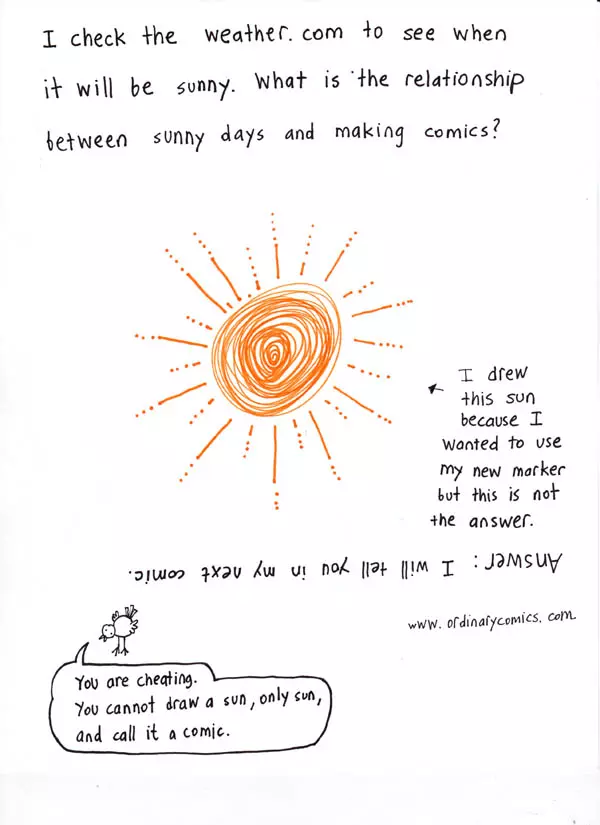 I check the weather.com to see when
it will be sunny. What is the relationship
between sunny days and making comics?
I drew
this sun
because I
wanted to use
my new marker
but this is not
the answer.
Answer: I will tell you in my next comic.
www.ordinarycomics.com
You are cheating.
You cannot draw a sun, only sun,
and call it a comic.